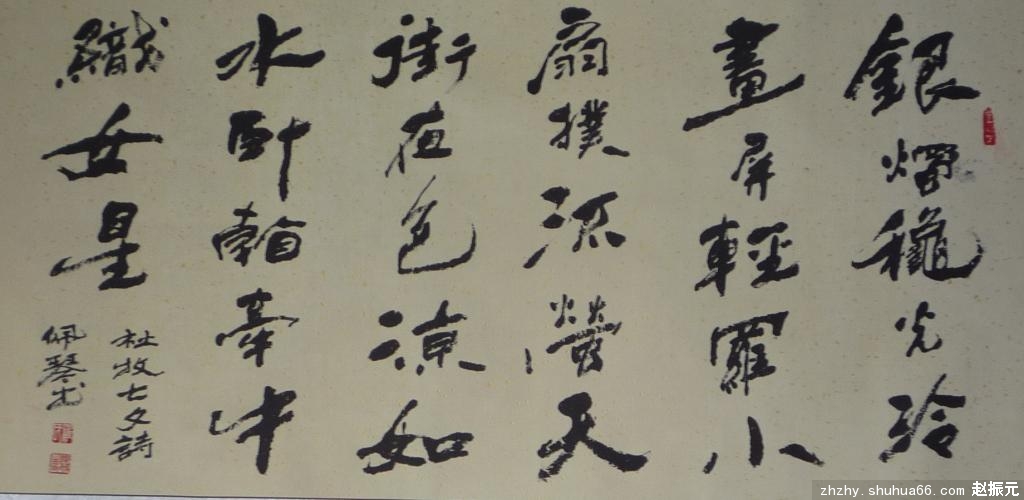 銀燭穐光冷
畫屏輕羅小
扇撲流螢天
街夜色涼如
水卧看牽牛
織女星
杜牧七夕詩
佩琴书
zhzhy.shuhua66.com 赵振元